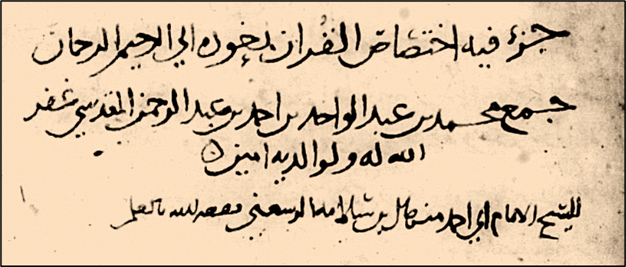 جزء فيه اختصاص القران بعوده الي الرحيم الرحمان
جمع محمد بن عبد الواحد بن احمد بن عبد الرحمن المقدسي غفر
الله له ولوالديه امين
للشيخ الامام ابي احمد بن نفعه الله بالعلم